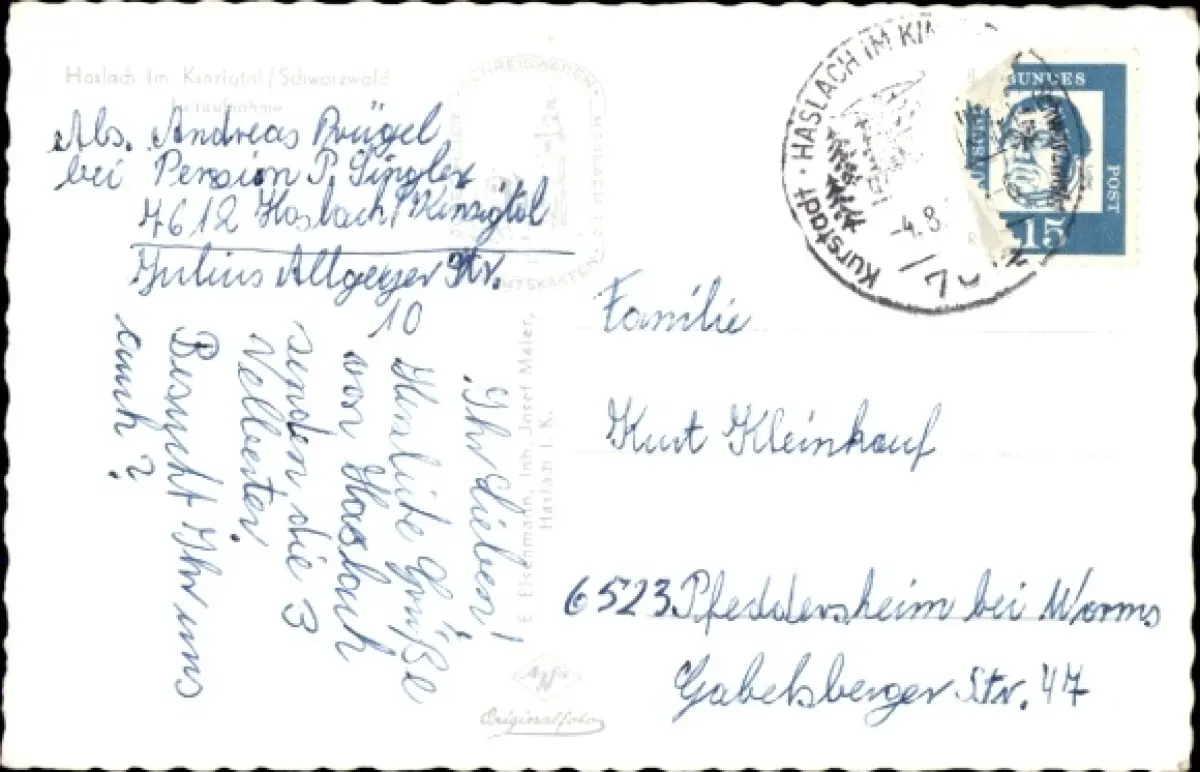 Haslach im Kinzigtal/Schwarzwald
Abs. Andreas Prügel
bei Pension P. Singler
7612 Haslach/Kinzigtal
Julius Allgeyer Str.
10
Ihr Lieben!
Herzliche Grüße
von Haslach
senden die 3
Velberter.
Besucht Ihr uns
auch?
E. Eisenmann, Inh. Josef Maier,
Haslach i. K.
Agfa
Originalfoto
Kurstadt · HASLACH IM
-4.8.
DEUTSCHE BUNDES
POST
15
Familie
Kurt Kleinkauf
6523 Pfeddersheim bei Worms
Gabelsberger Str. 47